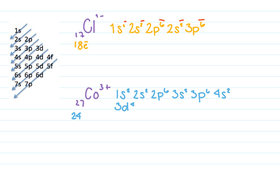 1s
2s 2p
3s 3p 3d
4s 4p 4d 4f
5s 5p 5d 5f
6s 6p 6d
7s 7p
₁₇Cl¹⁻ 1s² 2s² 2p⁶ 2s² 3p⁶
18ē
₂₇Co³⁺ 1s² 2s² 2p⁶ 3s² 3p⁶ 4s²
24 3d⁴